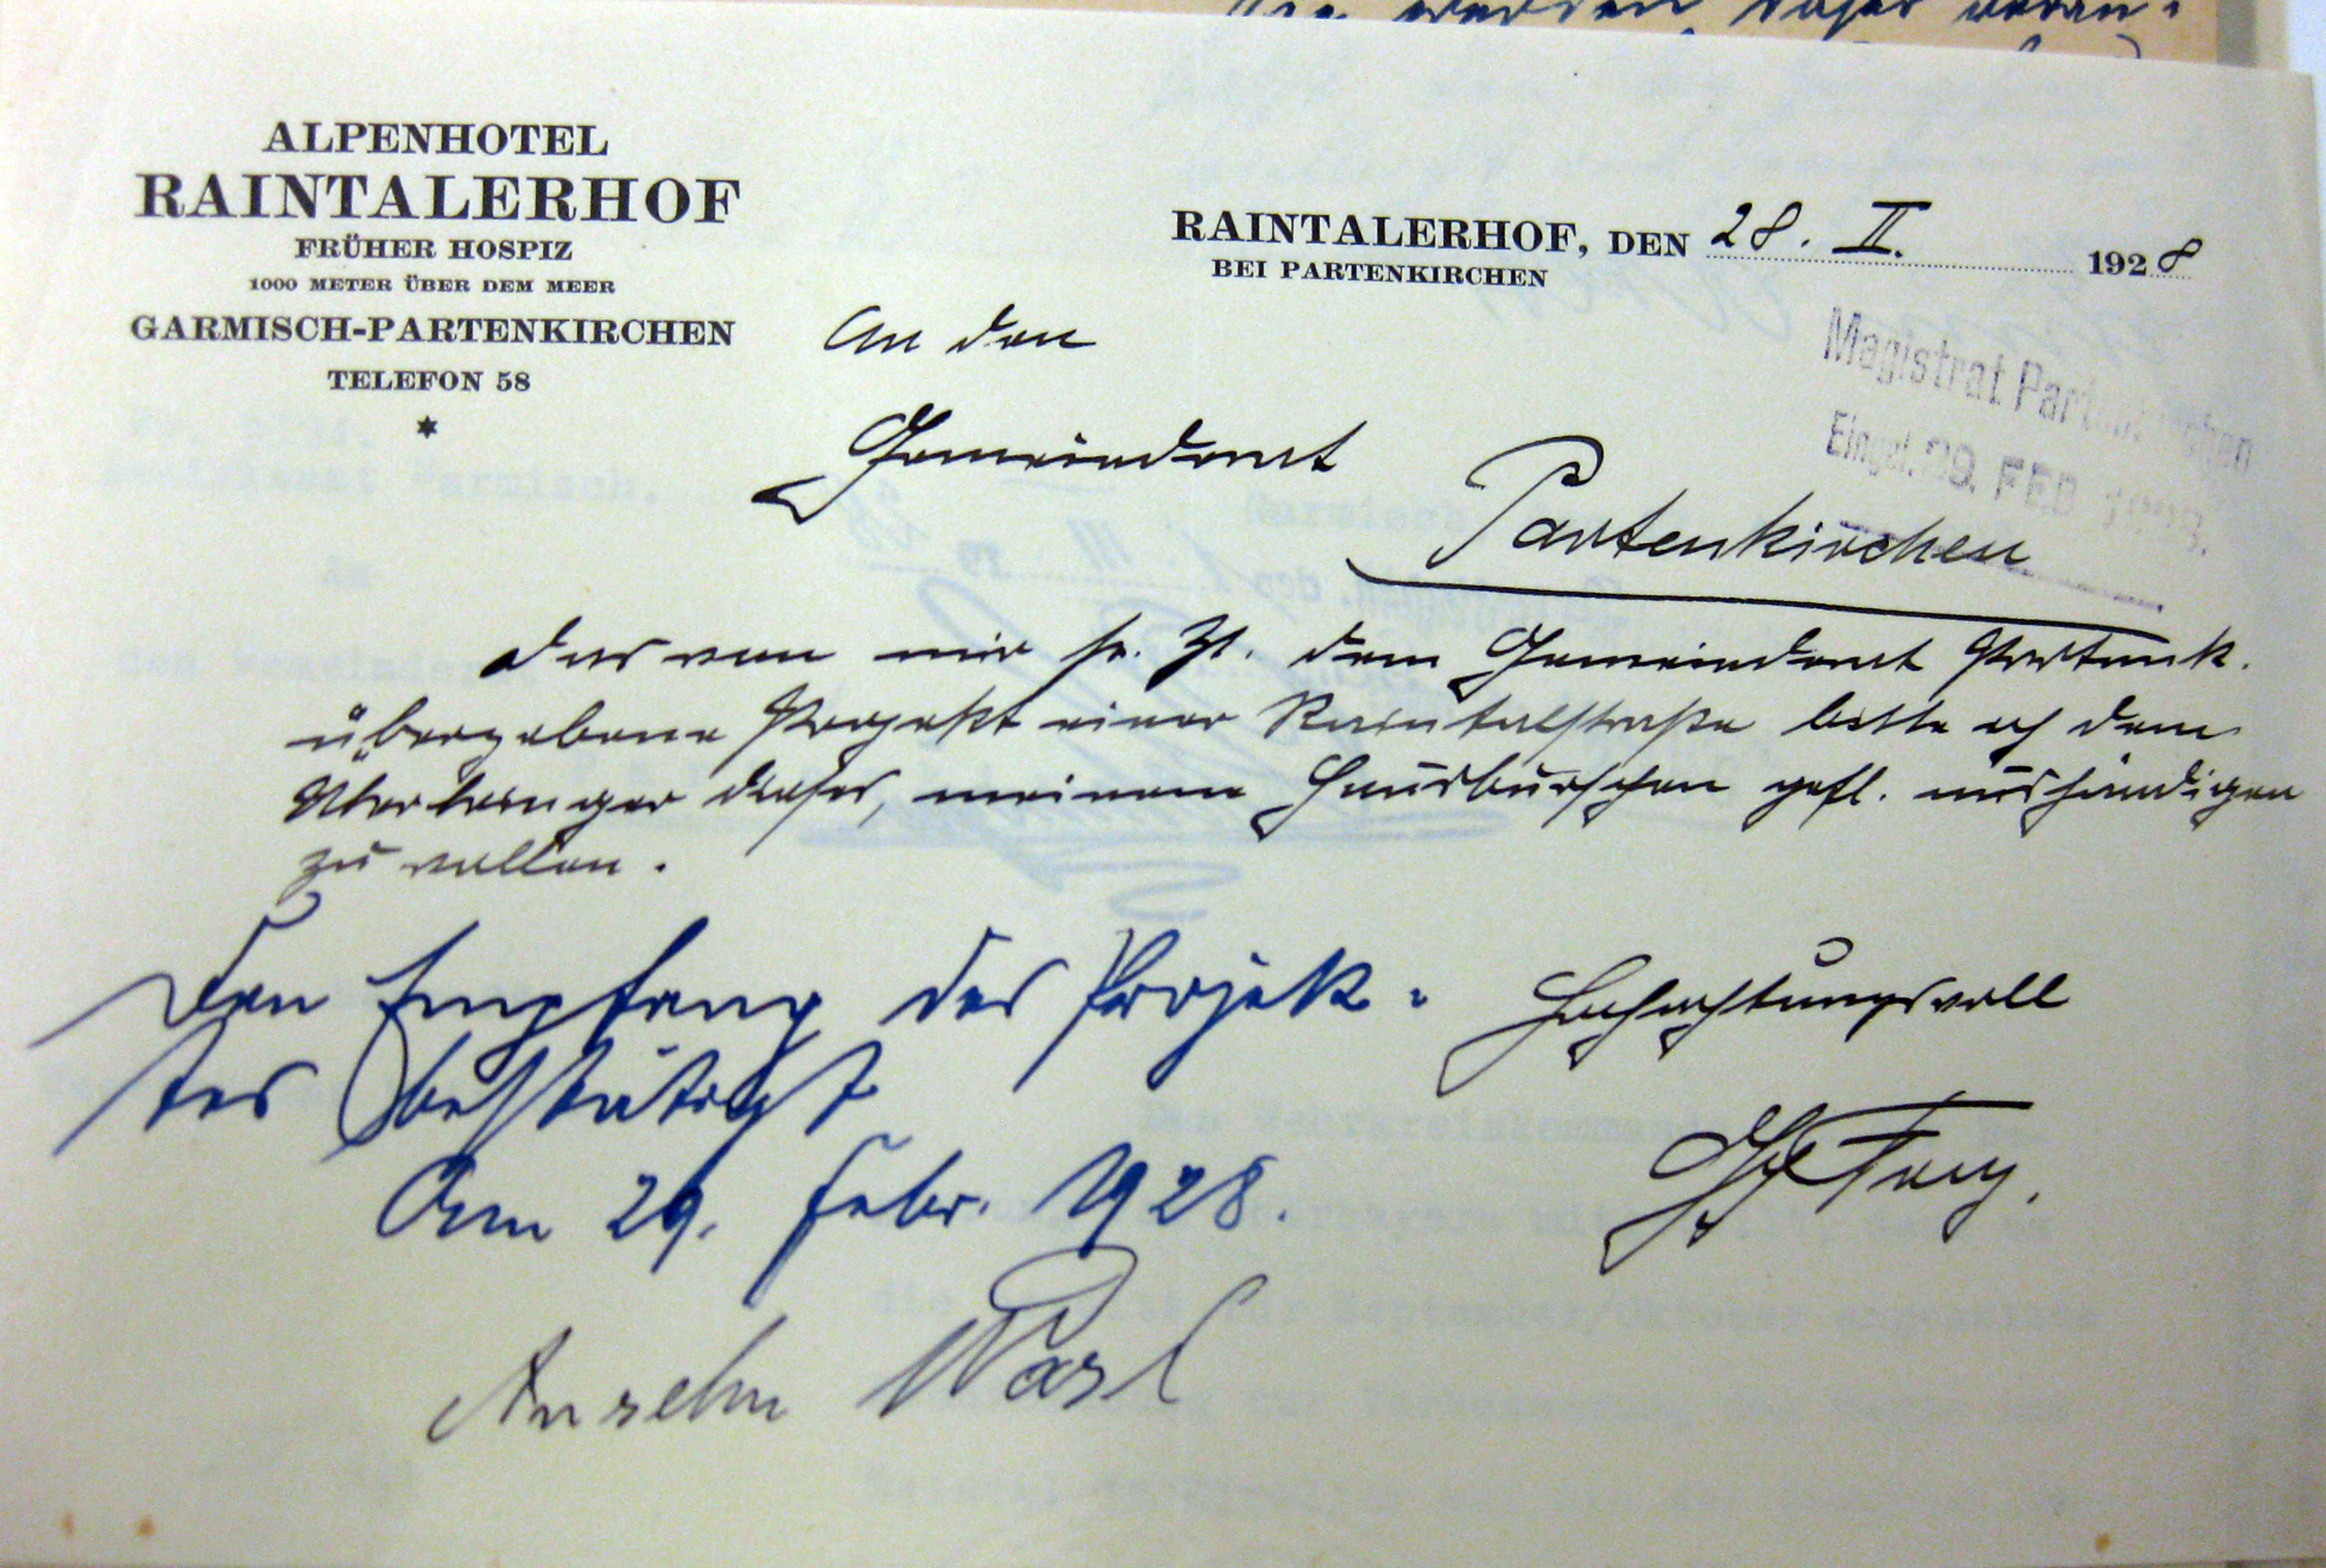 ALPENHOTEL
RAINTALERHOF
FRÜHER HOSPIZ
1000 METER ÜBER DEM MEER
GARMISCH-PARTENKIRCHEN
TELEFON 58
RAINTALERHOF, DEN 28. II. 1928
BEI PARTENKIRCHEN
Magistrat Partenkirchen
Eingel. 29. FEB. 1928.
An den
Gemeinderat
Partenkirchen
Das von mir sr. Zt. dem Gemeinderat Partenk.
übergebene Projekt einer Raintalstraße bitte ich dem
Überbringer dieses, meinem Hausburschen gefl. aushändigen
zu wollen.
Hochachtungsvoll
Den Empfang des Projek-
tes bestätigt
Am 29. Febr. 1928.
Anselm